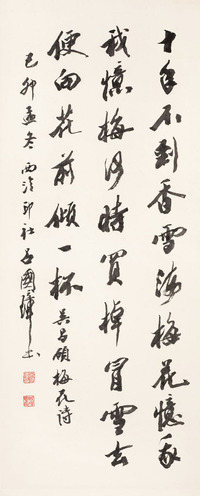 十年不到香雪海梅花憶我
我憶梅何時買棹冒雪去
便向花前傾一杯 吳昌碩梅花詩
己卯孟冬西泠印社呂國璋書